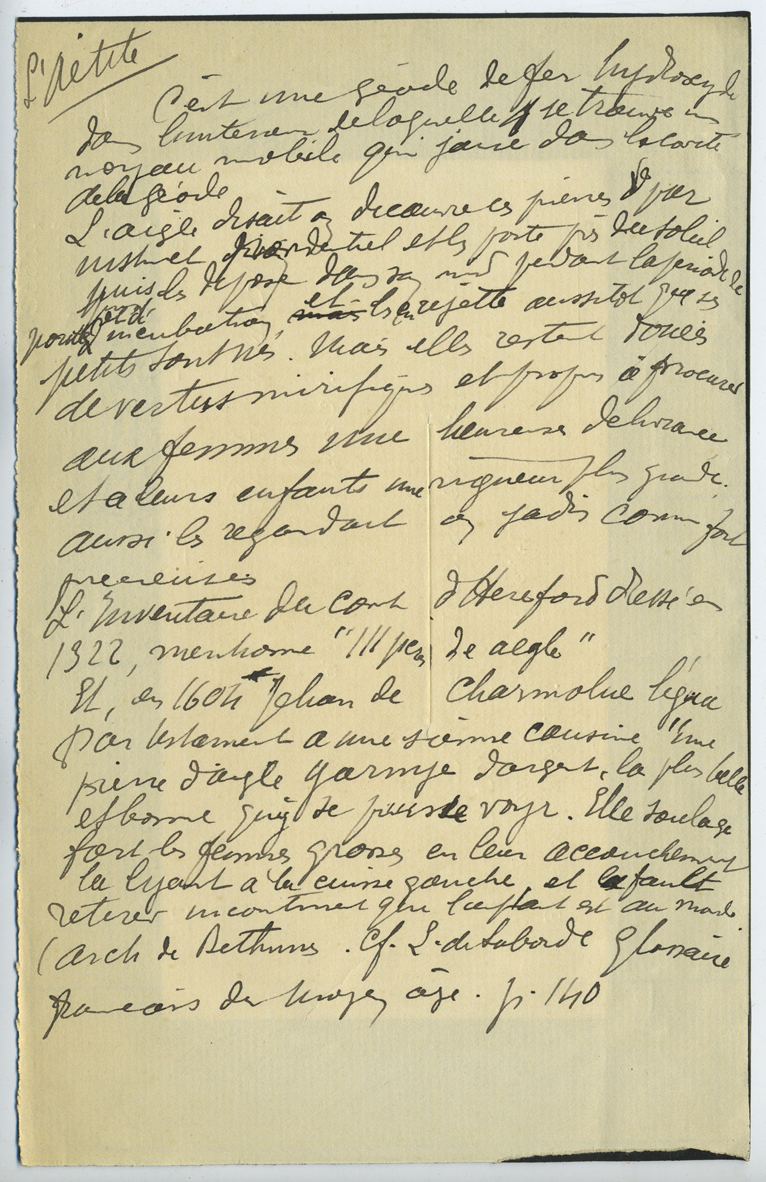 L'Aétite
C'est une géode de fer hydroxyde
dans l'interieur de laquelle se trouve un
noyau mobile qui joue dans la cavité
de la géode
L'aigle disait on decouvre ces pierres par
instinct providentiel et les porte près du soleil
puis les depose dans son nid pendant la periode de
ponte et d'incubation, mais et les rejette aussitot que ses
petits sont nés. Mais elles restent douées
de vertus mirifiques et propres à procurer
aux femmes une heureuse delivrance
et a leurs enfants une vigueur plus grande.
aussi les regardait on jadis comme fort
precieuses
L'Inventaire du comte d'Hereford dressé en
1322, mentionne "III peres de aegle"
Et, en 1604 Jehan de Charmolue légua
par testament a une sienne cousine "Une
pierre d'aigle garnye d'argent, la plus belle
et bonne quy se puisse voyr. Elle soulage
fort les femmes grosses en leur accouchement
la lyant a la cuisse gauche, et la fault
retirer incontinet que l'enfant est au monde
(Arch de Bethune. Cf. L. de Laborde Glossaire
francais du Moyen âge. p. 140